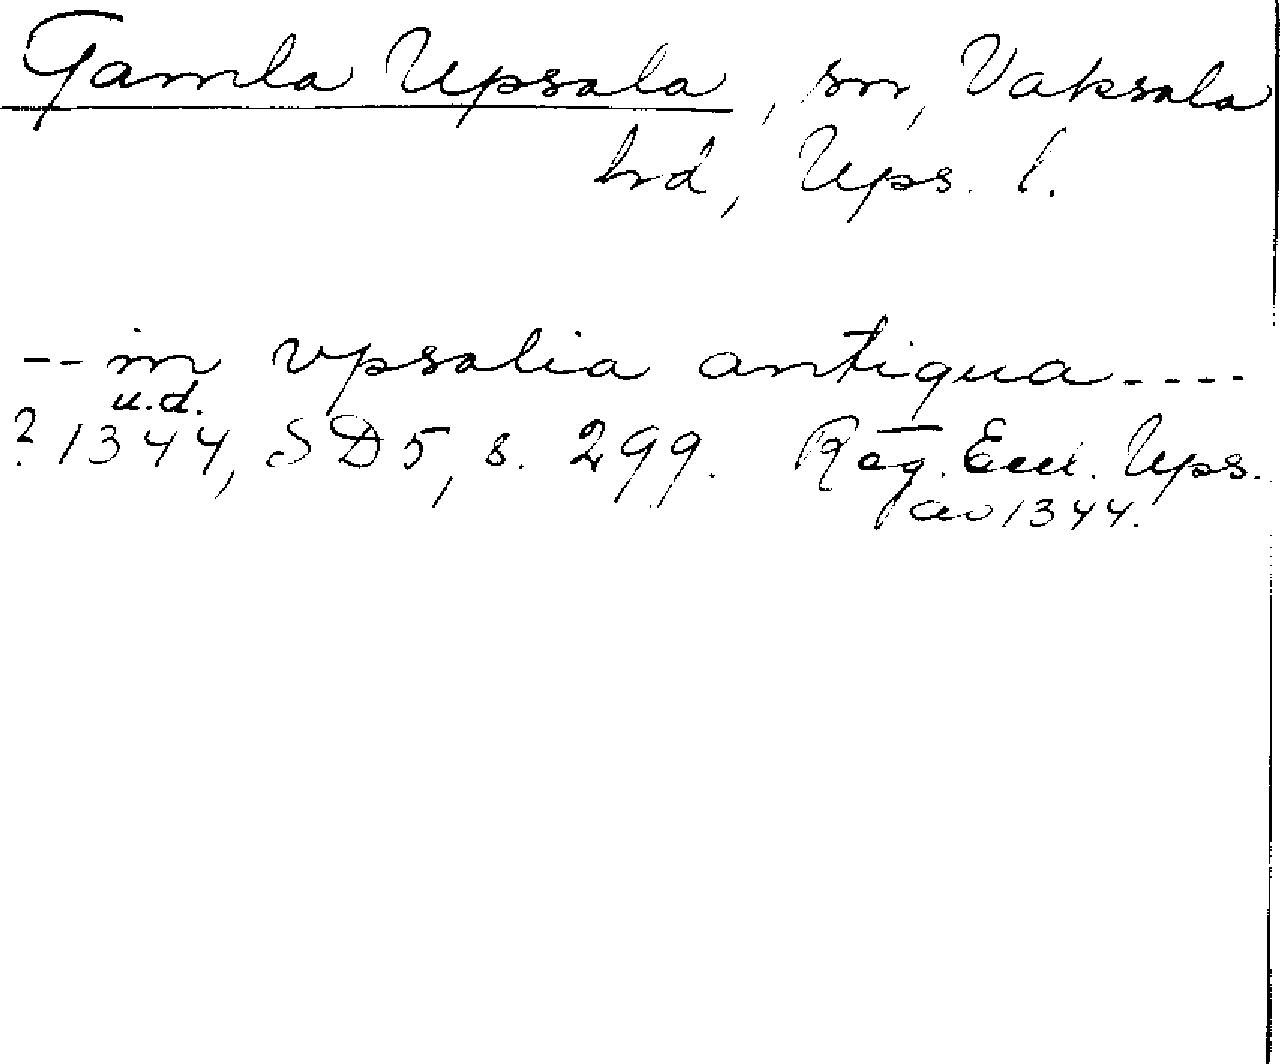 Gamla Upsala, sn, Vaksala
hd, Ups. l.
-- in vpsalia antiqua ----
u.d.
? 1344, SD 5, s. 299. Reg. Eccl. Ups.
av 1344.